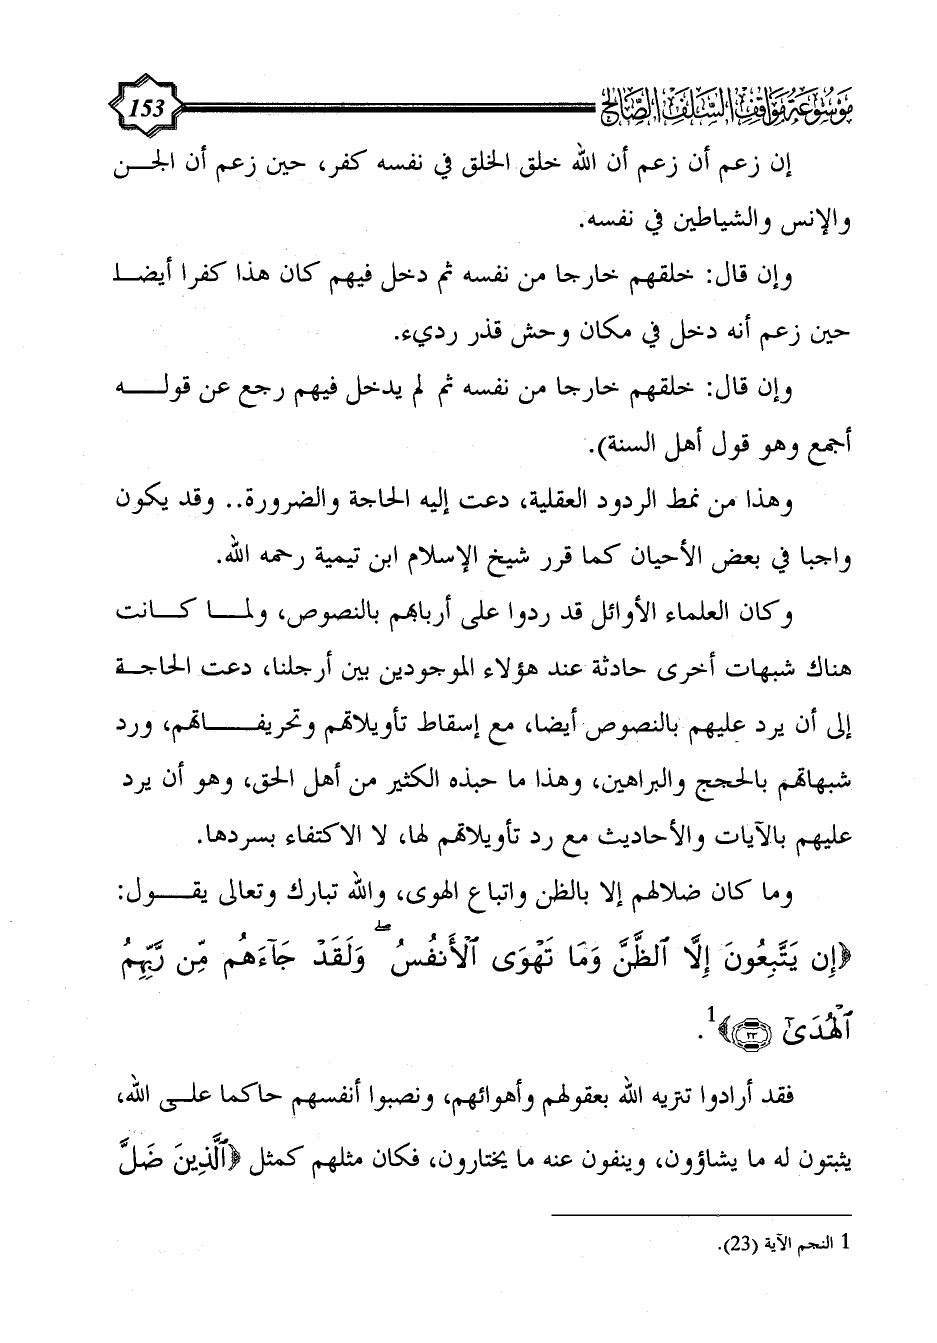 موسوعة مواقف السلف الصالح
153
إن زعم أن زعم أن الله خلق الخلق في نفسه كفر، حين زعم أن الجن
والإنس والشياطين في نفسه.
وإن قال: خلقهم خارجا من نفسه ثم دخل فيهم كان هذا كفرا أيضا
حين زعم أنه دخل في مكان وحش قذر رديء.
وإن قال: خلقهم خارجا من نفسه ثم لم يدخل فيهم رجع عن قوله
أجمع وهو قول أهل السنة).
وهذا من نمط الردود العقلية، دعت إليه الحاجة والضرورة.. وقد يكون
واجبا في بعض الأحيان كما قرر شيخ الإسلام ابن تيمية رحمه الله.
وكان العلماء الأوائل قد ردوا على أربابهم بالنصوص، ولما كانت
هناك شبهات أخرى حادثة عند هؤلاء الموجودين بين أرجلنا، دعت الحاجة
إلى أن يرد عليهم بالنصوص أيضا، مع إسقاط تأويلاتهم وتحريفاتهم، ورد
شبهاتهم بالحجج والبراهين، وهذا ما حبذه الكثير من أهل الحق، وهو أن يرد
عليهم بالآيات والأحاديث مع رد تأويلاتهم لها، لا الاكتفاء بسردها.
وما كان ضلالهم إلا بالظن واتباع الهوى، والله تبارك وتعالى يقول:
﴿إِن يَتَّبِعُونَ إِلَّا ٱلظَّنَّ وَمَا تَهْوَى ٱلْأَنفُسُ ۖ وَلَقَدْ جَآءَهُم مِّن رَّبِّهِمُ
ٱلْهُدَىٰٓ ٢٣﴾1.
فقد أرادوا تتريه الله بعقولهم وأهوائهم، ونصبوا أنفسهم حاكما على الله،
يثبتون له ما يشاؤون، وينفون عنه ما يختارون، فكان مثلهم كمثل ﴿ٱلَّذِينَ ضَلَّ
1 النجم الآية (23).